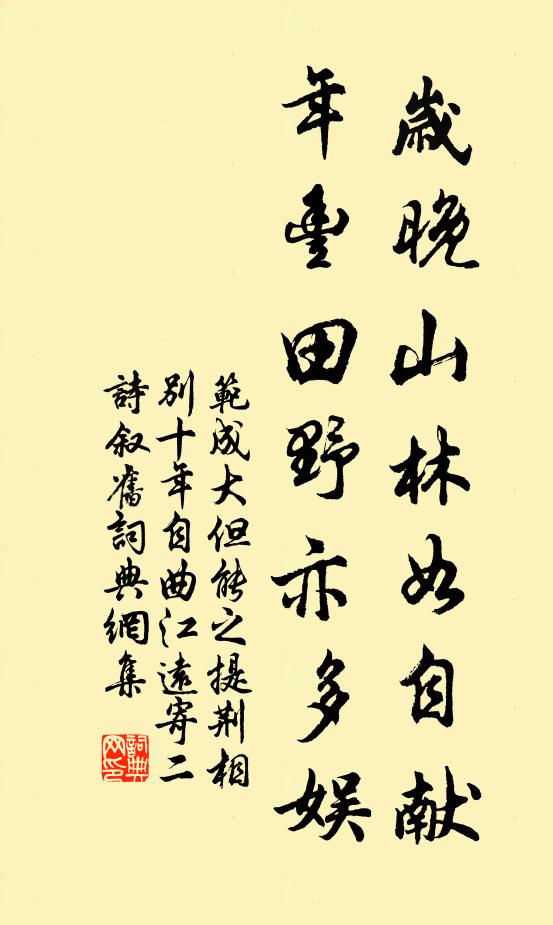 歲晚山林如自献
年豐田野亦多娱
範成大但能之提荆相
别十年自曲江遠寄二
詩叙舊詞典網集
詞典网印